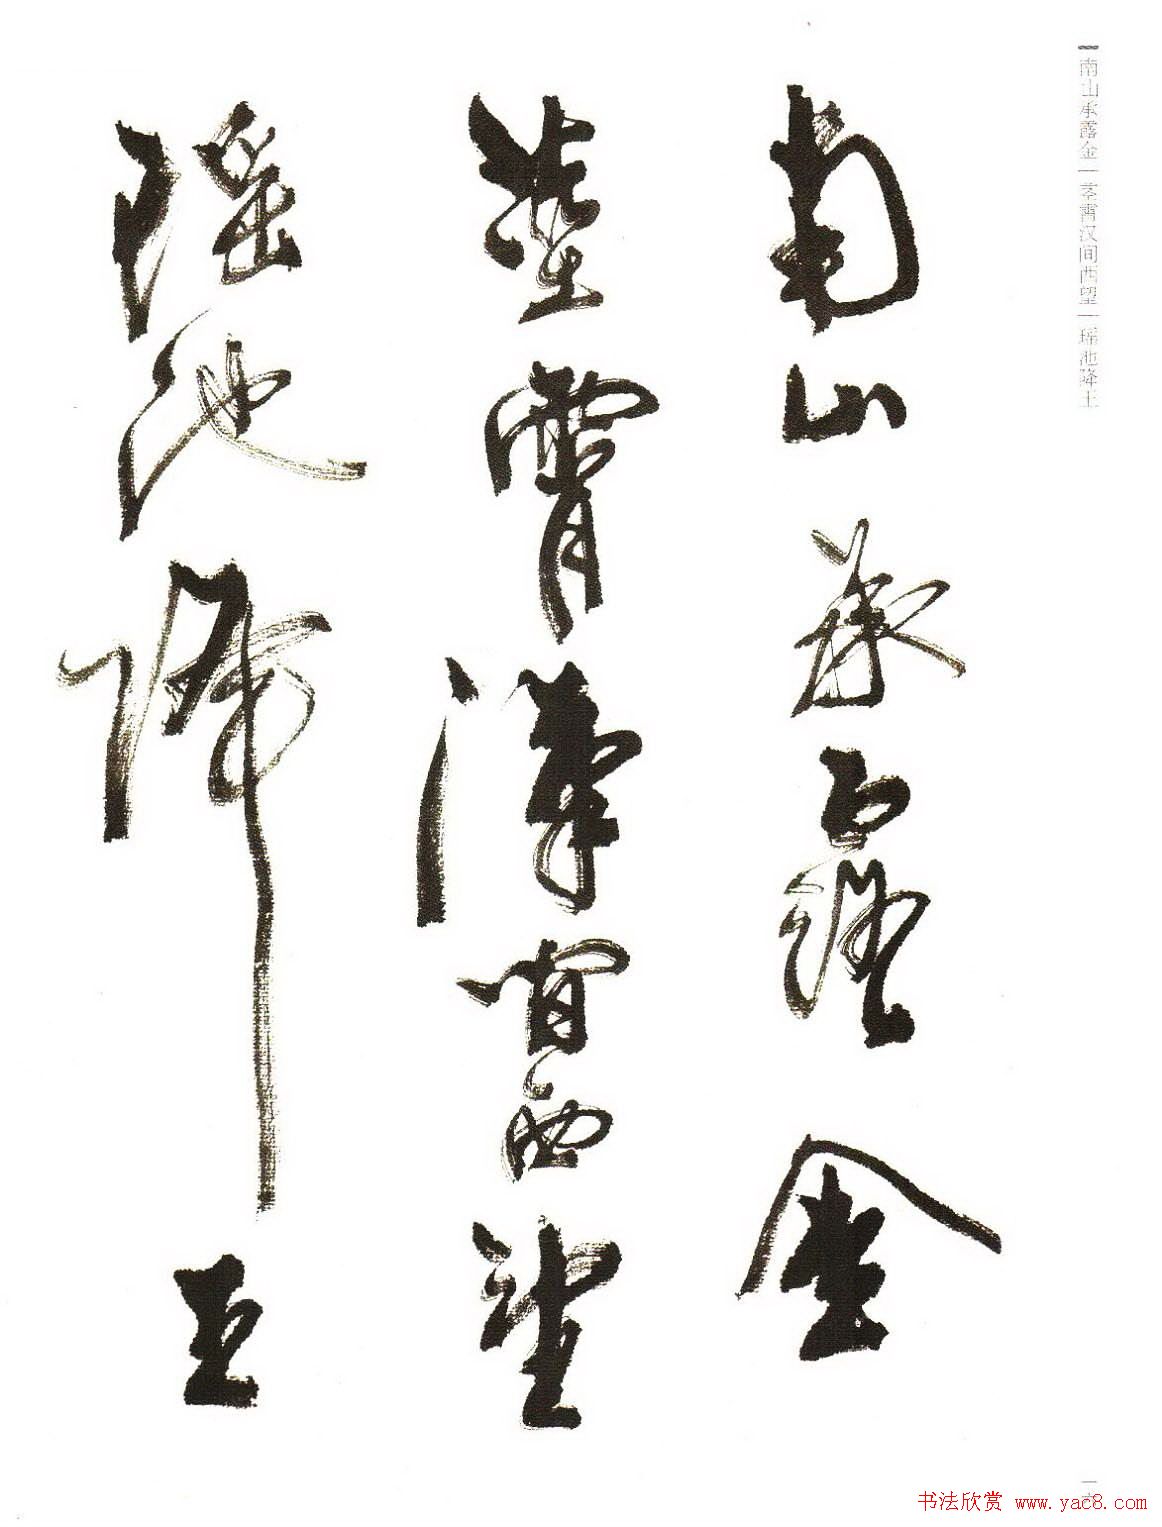 南山承露金
茎霄汉间西望
瑶池降王
南山承露金|茎霄汉间西望|瑶池降王
书法欣赏 www.yac8.com